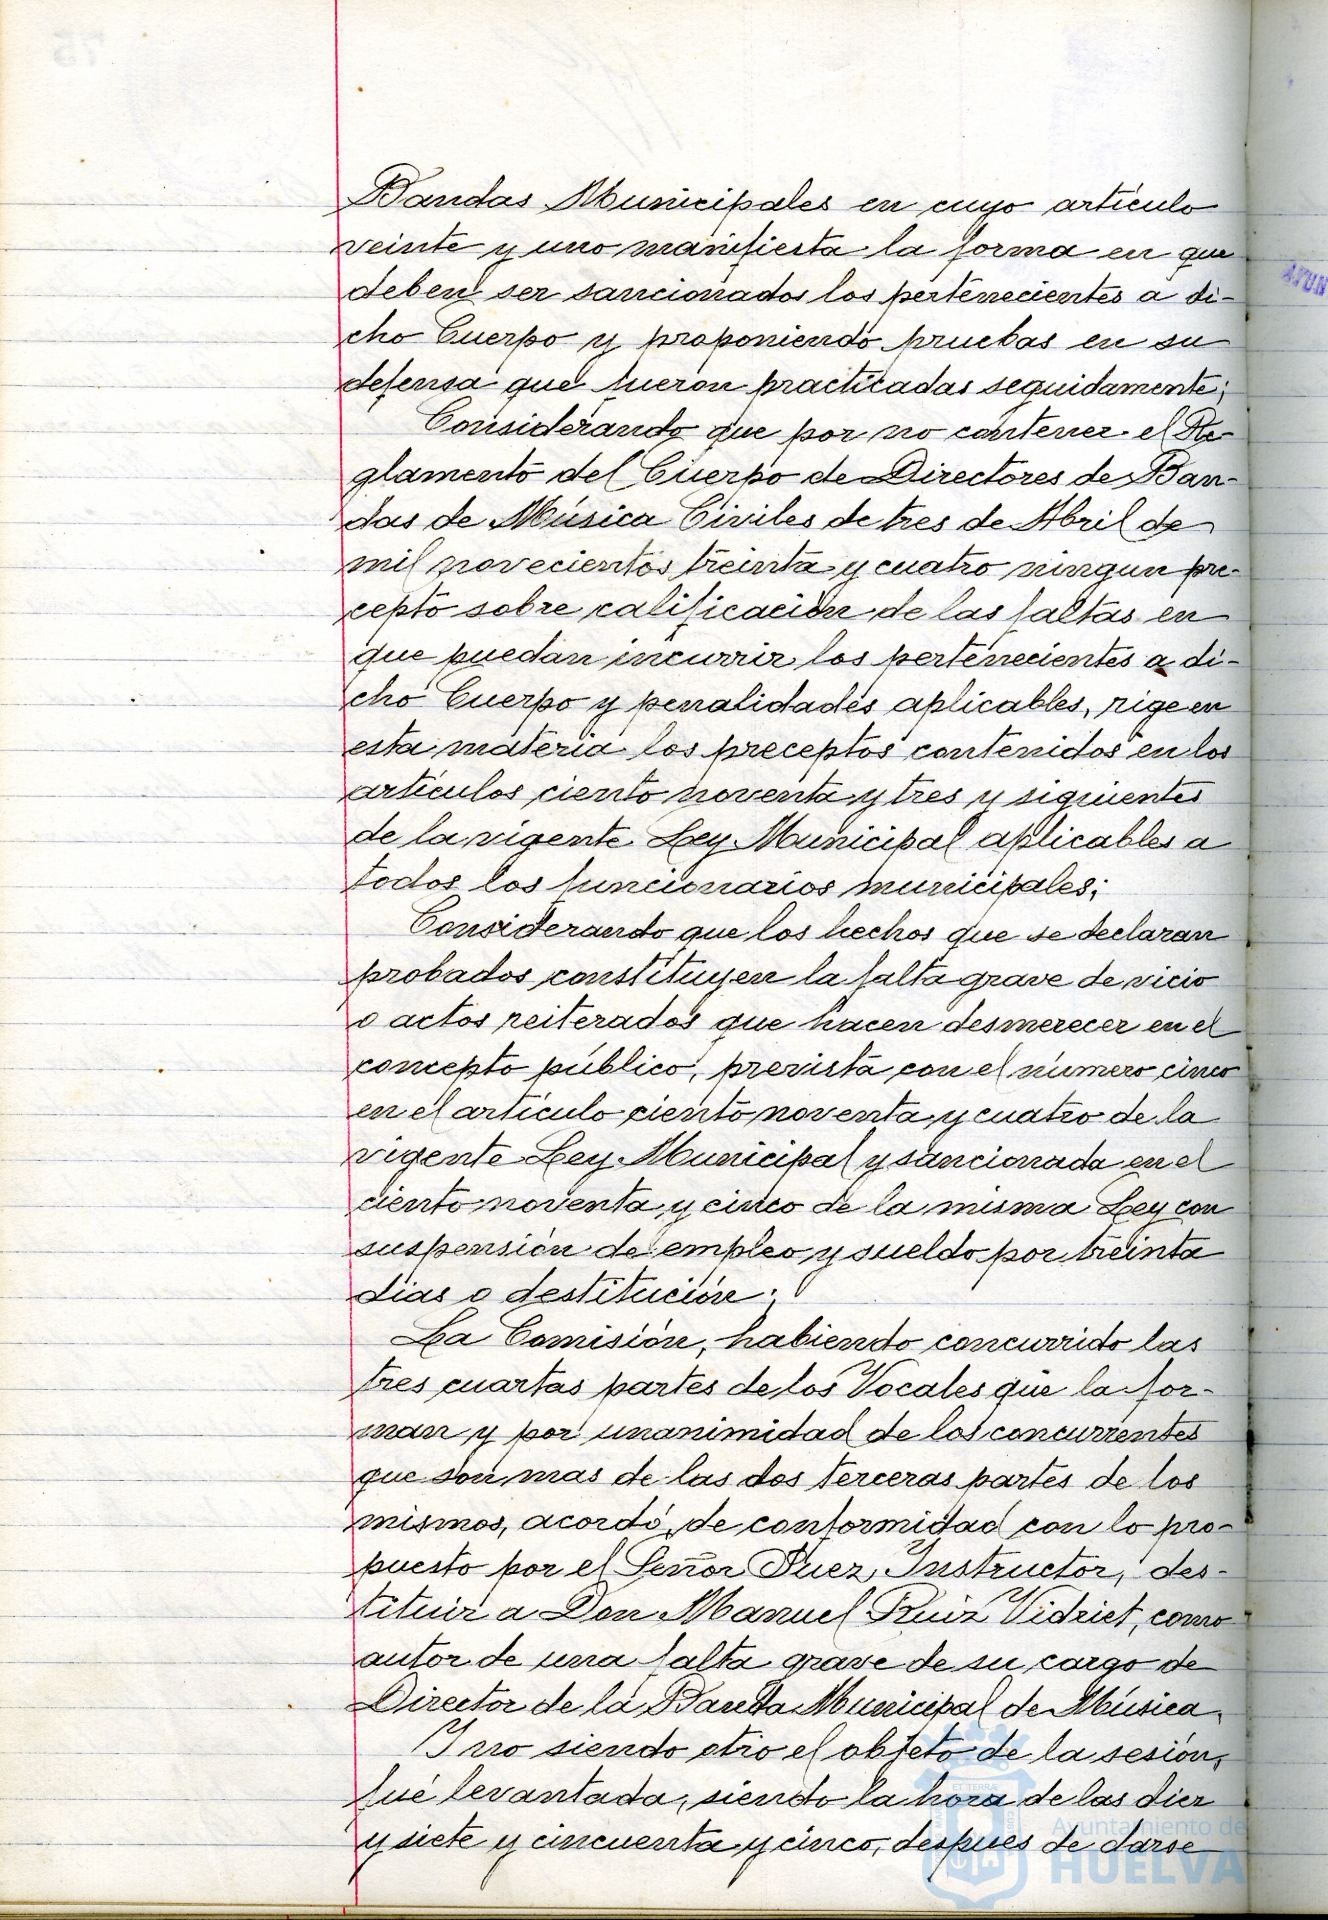 Bandas Municipales en cuyo artículo
veinte y uno manifiesta la forma en que
deben ser sancionados los pertenecientes a di-
cho Cuerpo y proponiendo pruebas en su
defensa que fueron practicadas seguidamente;
Considerando que por no contener el Re-
glamento del Cuerpo de Directores de Ban-
das de Música Civiles de tres de Abril de
mil novecientos treinta y cuatro ningun pre-
cepto sobre calificación de las faltas en
que puedan incurrir los pertenecientes a di-
cho Cuerpo y penalidades aplicables, rige en
esta materia los preceptos contenidos en los
artículos ciento noventa y tres y siguientes
de la vigente Ley Municipal aplicables a
todos los funcionarios municipales;
Considerando que los hechos que se declaran
probados constituyen la falta grave de vicio
o actos reiterados que hacen desmerecer en el
concepto público, prevista con el número cinco
en el artículo ciento noventa y cuatro de la
vigente Ley Municipal y sancionada en el
ciento noventa y cinco de la misma Ley con
suspensión de empleo y sueldo por treinta
dias o destitución;
La Comisión, habiendo concurrido las
tres cuartas partes de los Vocales que la for-
man y por unanimidad de los concurrentes
que son mas de las dos terceras partes de los
mismos, acordó, de conformidad con lo pro-
puesto por el Señor Juez Instructor, des-
tituir a Don Manuel Ruiz Vidriet, como
autor de una falta grave de su cargo de
Director de la Banda Municipal de Música.
Y no siendo otro el objeto de la sesión,
fué levantada, siendo la hora de las diez
y siete y cincuenta y cinco, despues de darse
Ayuntamiento de
HUELVA